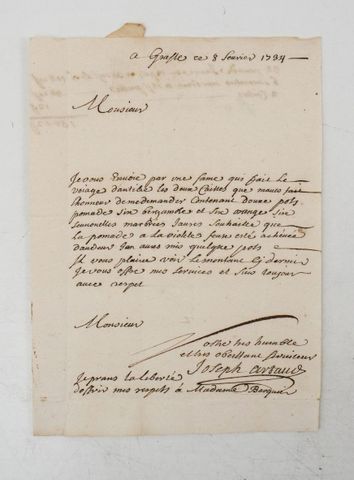 a Grasse ce 8 fevrier 1734
Monsieur
Je vous Envoie par une fame qui fait le
voiage dantibe les deux Caisses que maves fait
lhonneur de me demander Contenant douze pots
pomade Six bergamotte et Six orange Six
savonettes marbrées Jaures souhaitté que
la pomade a la violete feuse estée achevée
dandeur Jan aures mis quelque pots
Il vous plaira voir le montant cy dernier
Je vous offre mes services et suis toujour
avec respet
Monsieur
Vostre tres humble
et tres obeissant serviteur
Joseph artaud
Je prans la liberté
doffrir mes respets à Madame